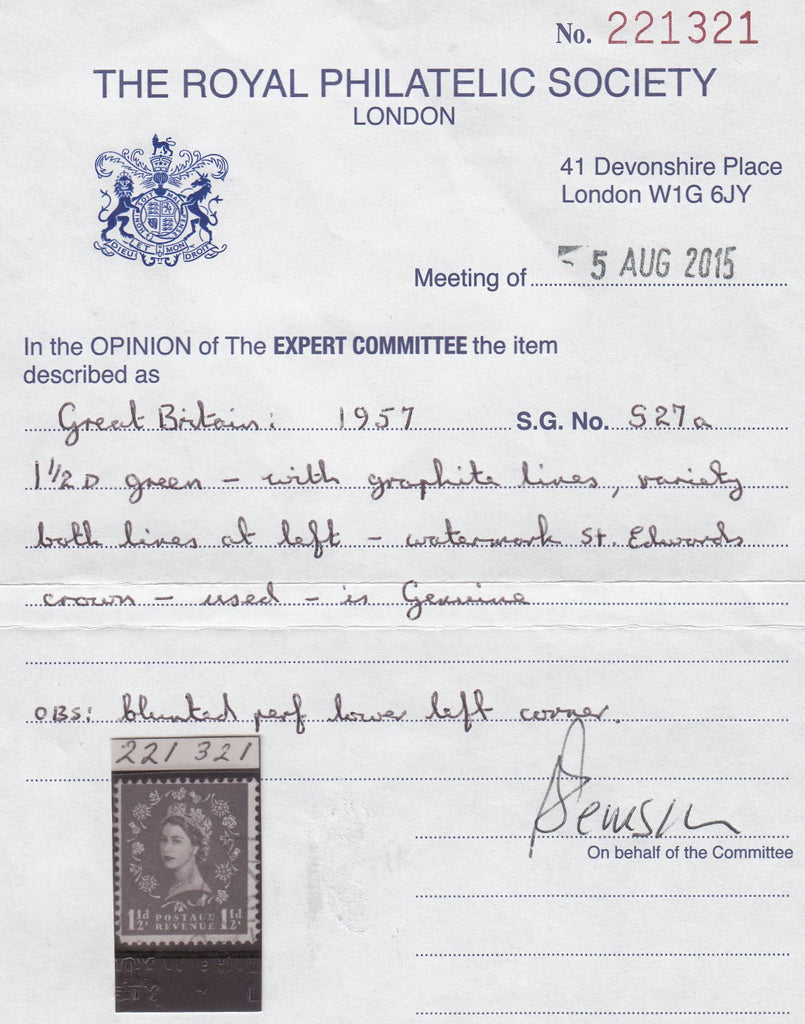 No. 221321
THE ROYAL PHILATELIC SOCIETY
LONDON
41 Devonshire Place
London W1G 6JY
DIEU ET MON DROIT
Meeting of 5 AUG 2015
In the OPINION of The EXPERT COMMITTEE the item
described as
Great Britain: 1957 S.G. No. S27a
1½D green – with graphite lines, variety
both lines at left – watermark St. Edwards
crown – used – is Genuine
OBS: blunted perf lower left corner.
221 321
1½d POSTAGE REVENUE 1½d
On behalf of the Committee